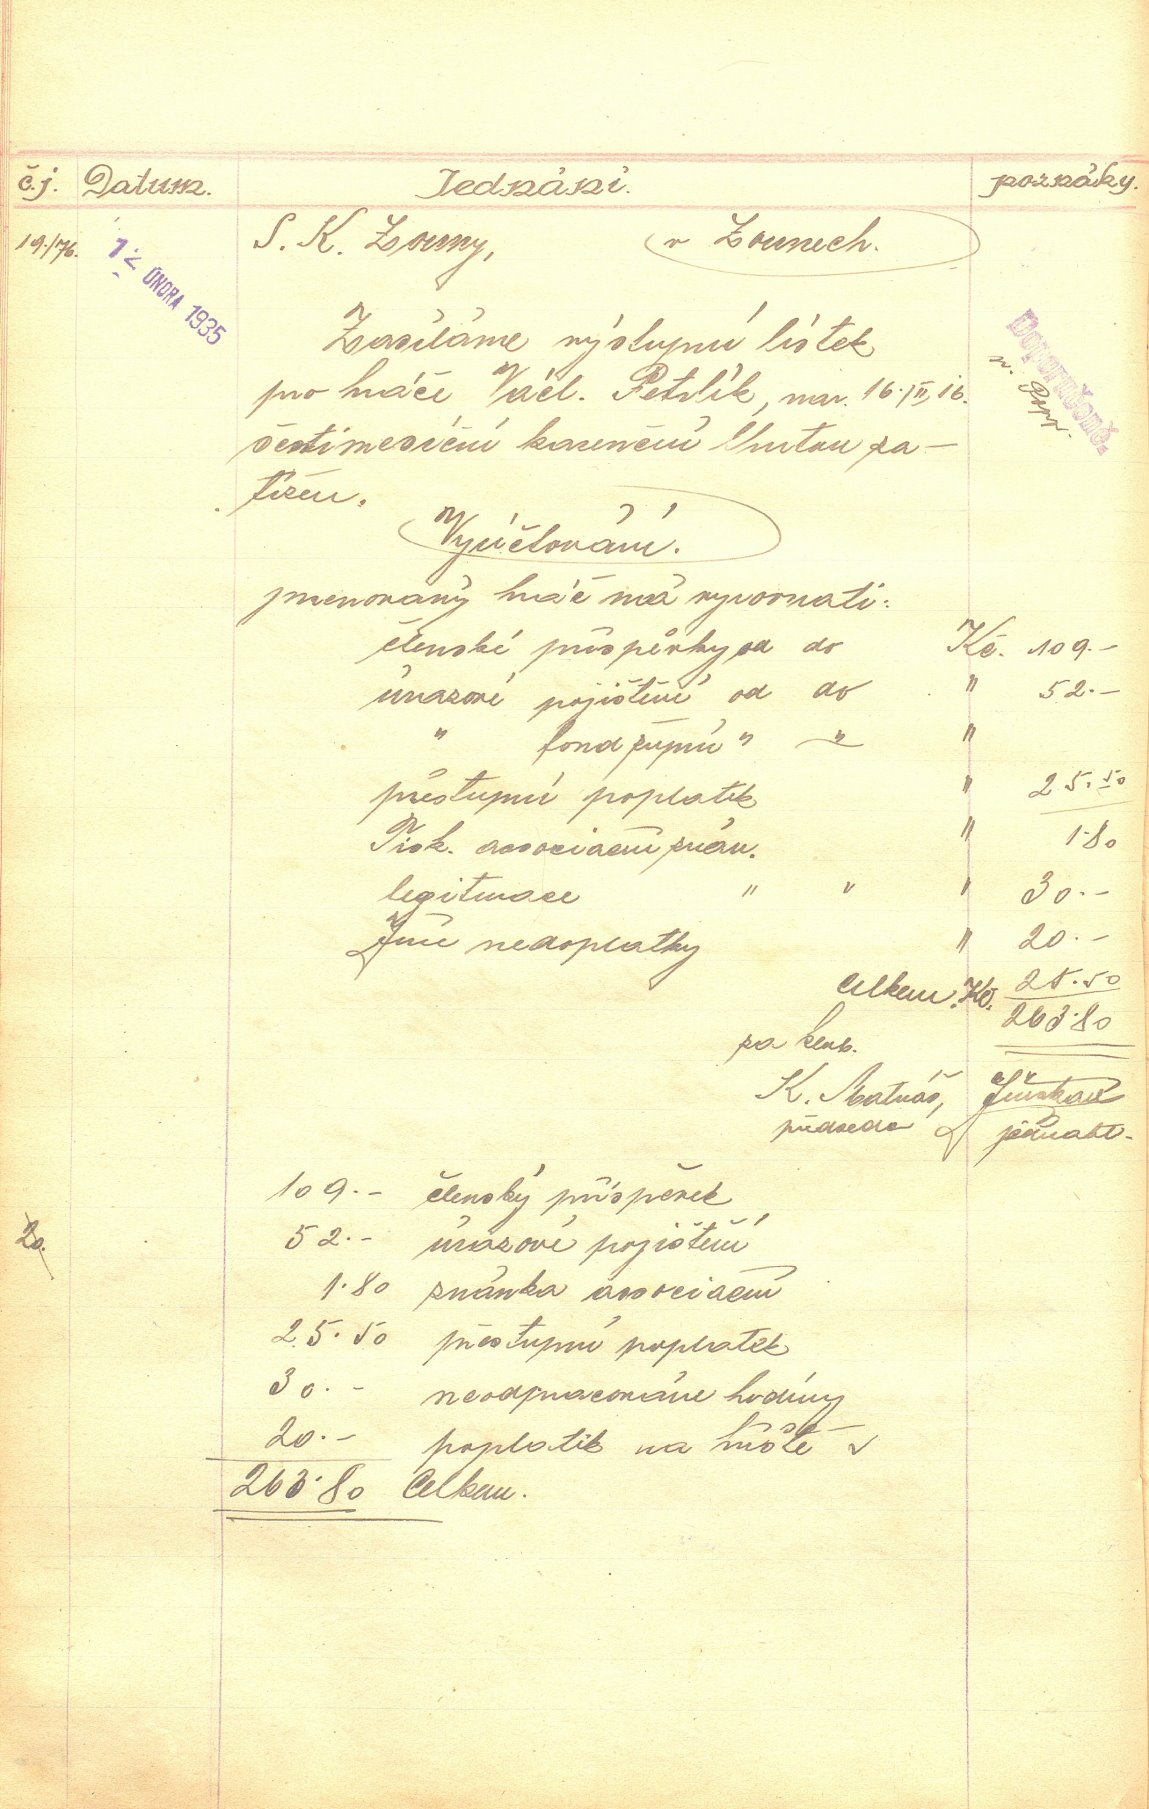 č.j. Datum. Jednání. poznáky.
19./76. 12 ÚNORA 1935 S. K. Louny, v Lounech.
Zasíláme výstupní lístek
Doporučeně.
pro hráče Václ. Petrlík, nar. 16./II.16.
šestiměsíční karenční lhutou za-
tížen.
Vyúčtování.
jmenovaný hráč má vyrovnati:
členské příspěvky od do Kč. 109.-
úrazové pojištění od do " 52.-
" fond župní " " "
přestupní poplatek " 25.50
Tisk. asociační znám. " 1.80
legitimace " " " 30.-
Jiné nedoplatky " 20.-
Celkem Kč. 25.50
263.80
za klub.
K. Matuáš,
předseda jednatel.
109.- členský příspěvek
20. 52.- úrazové pojištění
1.80 známka asociační
25.50 přestupní poplatek
30.- neodpracováne hodiny
20.- poplatek na hřiště
263.80 Celkem.